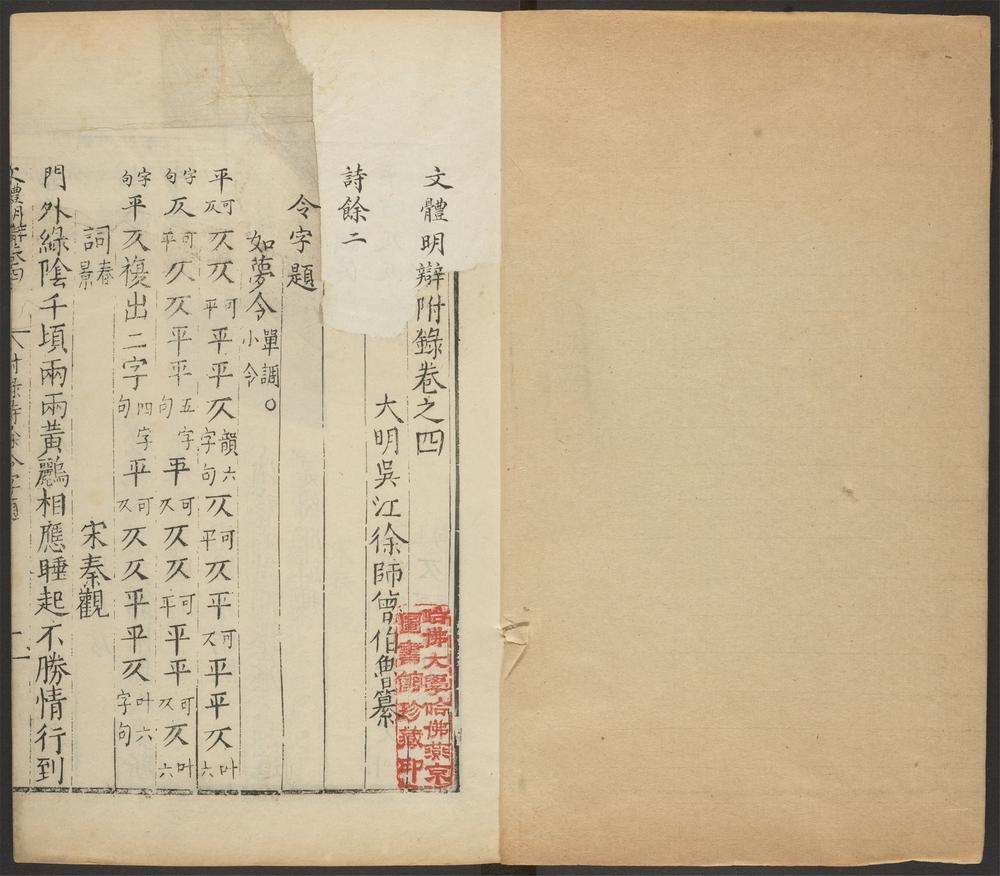 文體明辯附錄卷之四
大明吳江徐師曾伯魯纂
詩餘二
令字題
如夢令單調小令。
平可仄仄仄可平平平仄韻六字句仄可平仄平可仄平平仄叶六
字句仄可平仄仄平平五字句平可仄仄仄可平平平可仄仄叶六
字句平仄複出二字四字句平可仄仄仄平平仄叶六字句
詞春景 宋秦觀
門外綠陰千頃兩兩黃鸝相應睡起不勝情行到
哈佛大學哈佛燕京
圖書館珍藏印